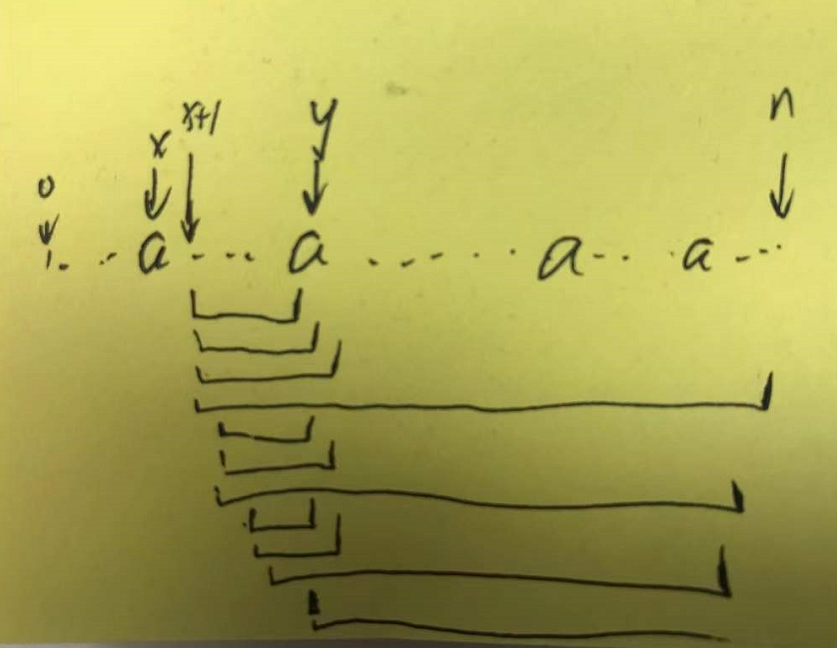 0 x x+1 y n
a a a a